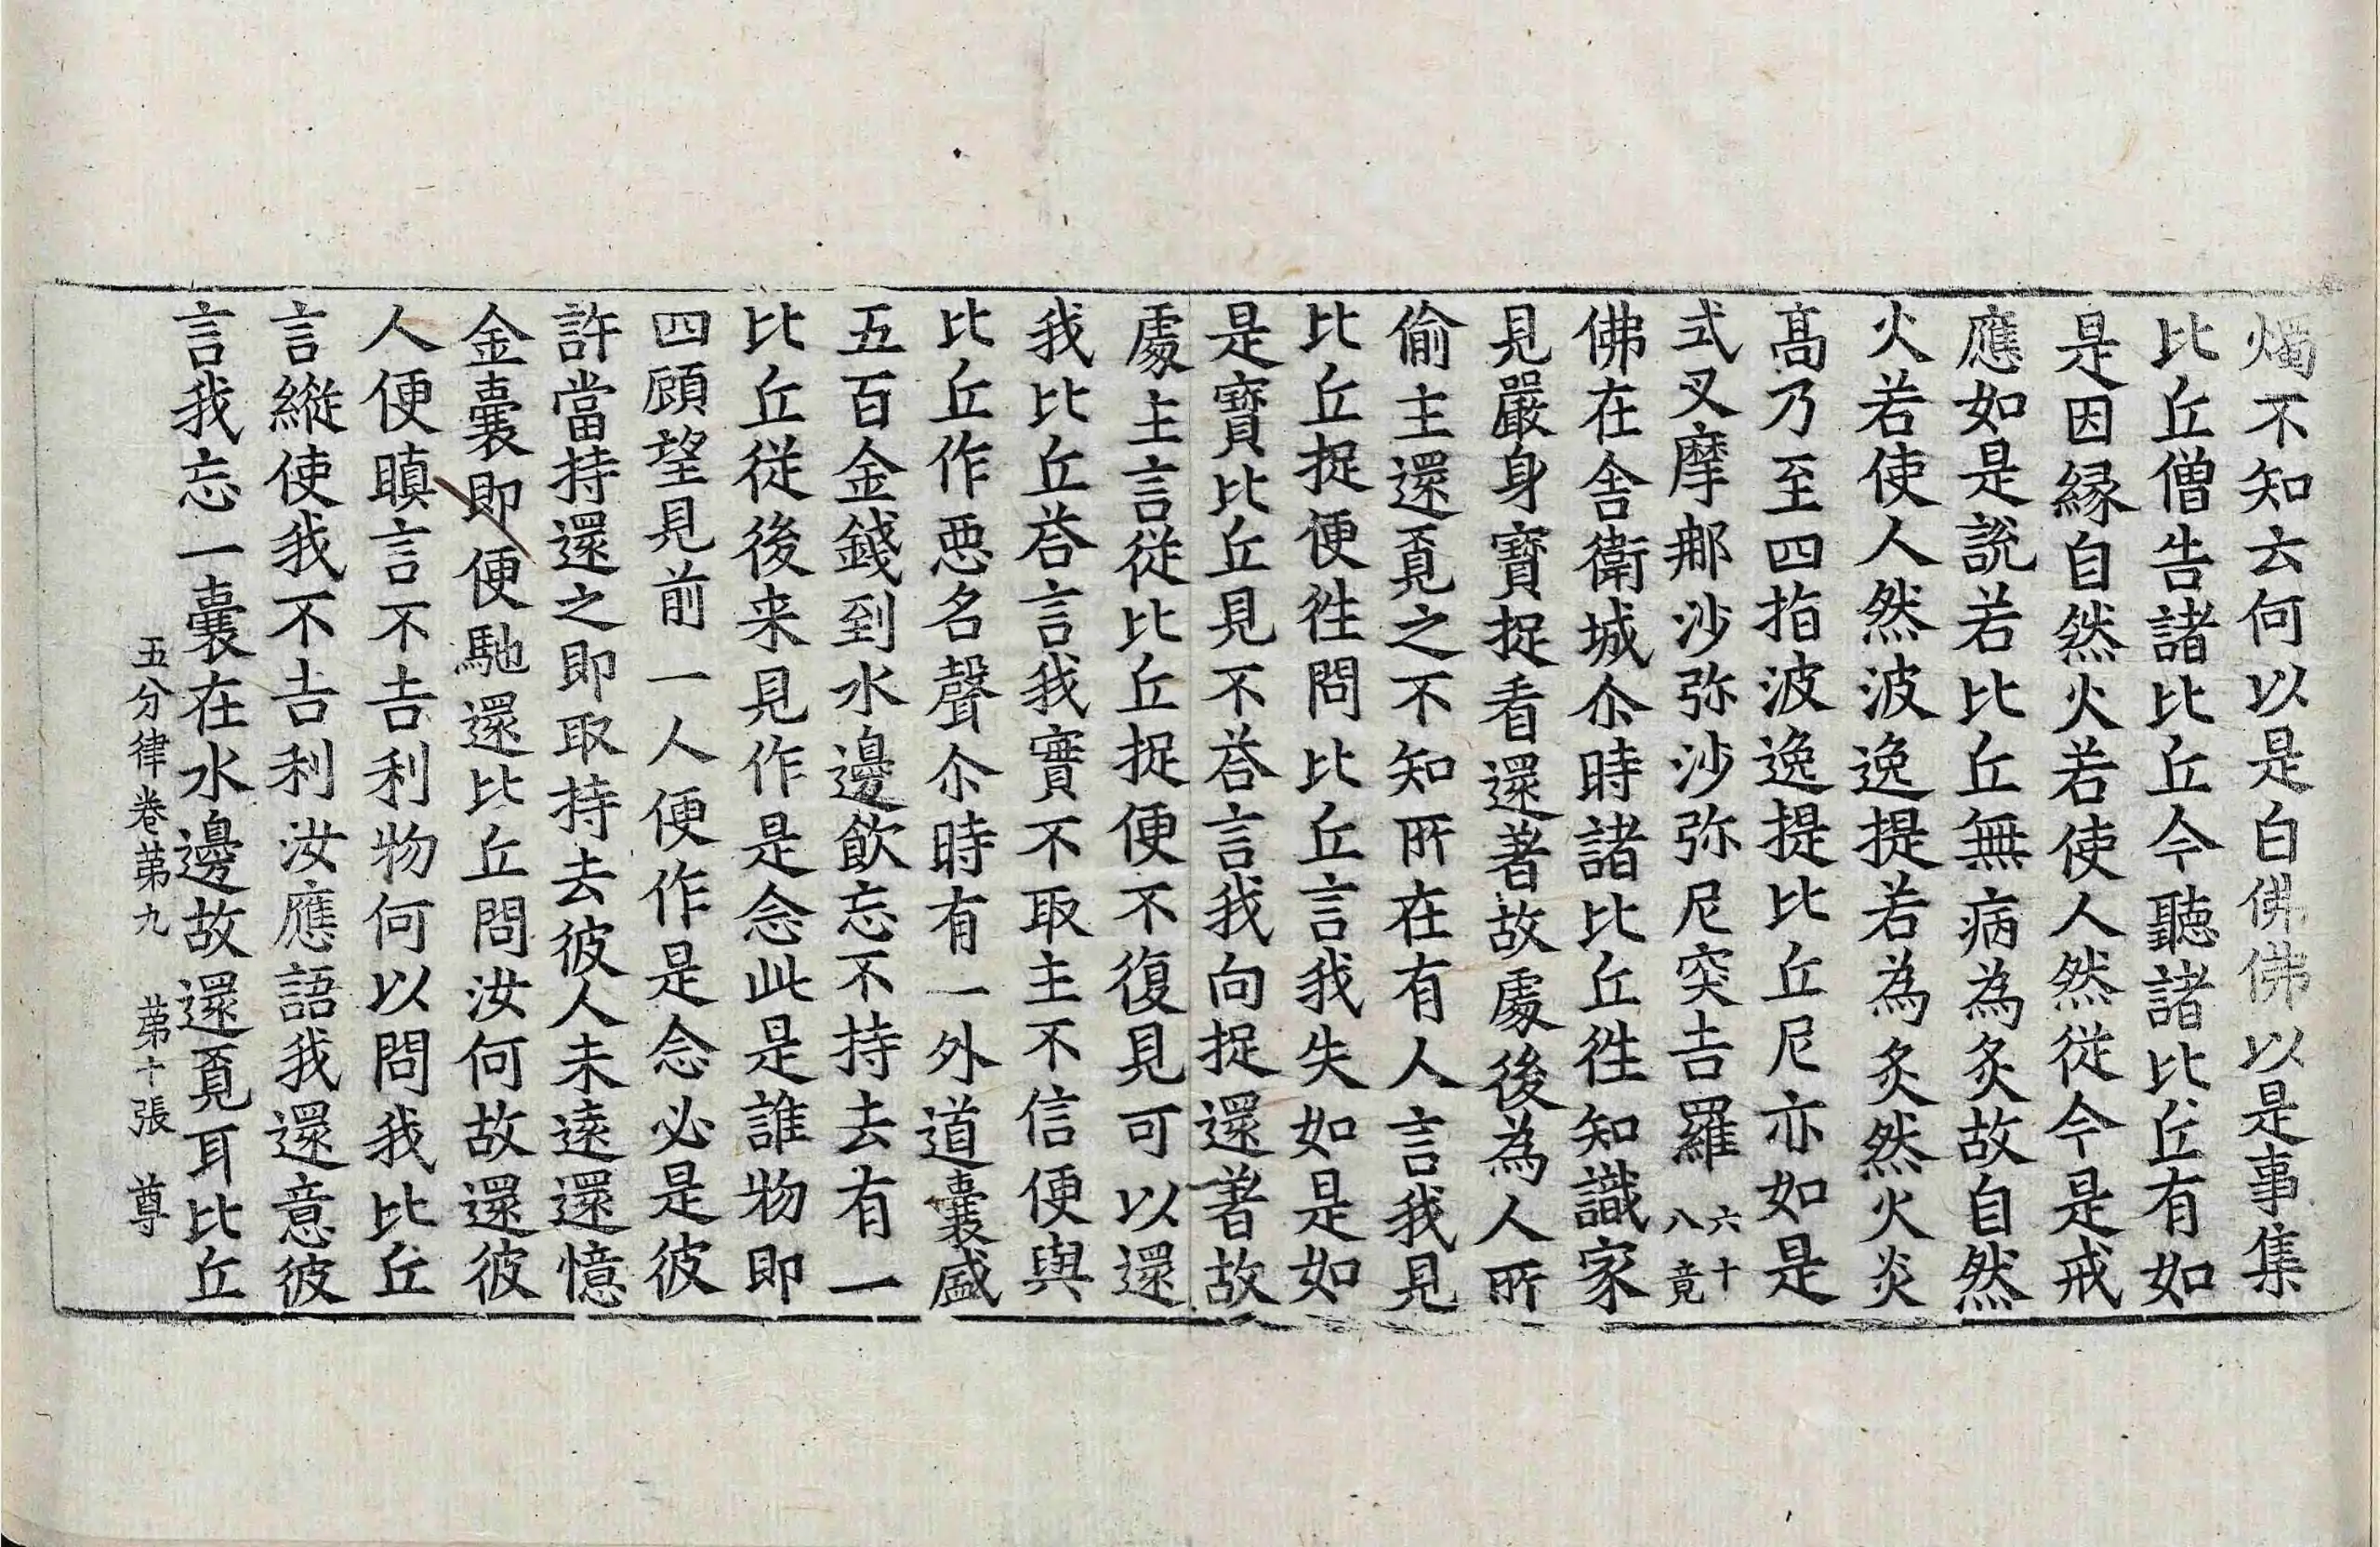 燭不知云何以是白佛佛以是事集
比丘僧告諸比丘今聽諸比丘有如
是因縁自然火若使人然從今是戒
應如是說若比丘無病為炙故自然
火若使人然波逸提若為炙然火炎
髙乃至四指波逸提比丘尼亦如是
式叉摩那沙弥沙弥尼突吉羅六十八竟
佛在舎衛城尒時諸比丘徃知識家
見嚴身寶捉看還著故處後為人所
偷主還覓之不知所在有人言我見
比丘捉便徃問比丘言我失如是如
是寶比丘見不荅言我向捉還著故
處主言從比丘捉便不復見可以還
我比丘荅言我實不取主不信便與
比丘作惡名聲尒時有一外道囊盛
五百金錢到水邊飲忘不持去有一
比丘從後来見作是念此是誰物即
四顧望見前一人便作是念必是彼
許當持還之即取持去彼人未遠還憶
金囊即便馳還比丘問汝何故還彼
人便瞋言不吉利物何以問我比丘
言縱使我不吉利汝應語我還意彼
言我忘一囊在水邊故還覓耳比丘
五分律卷苐九 苐十張 尊